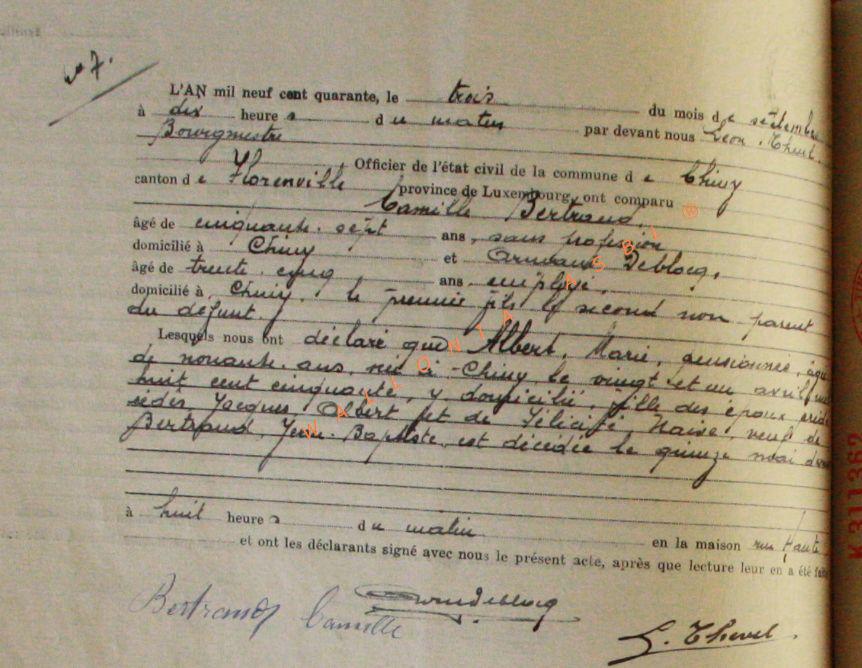 N° 7.
L'AN mil neuf cent quarante, le trois du mois de septembre
à dix heures du matin par devant nous Léon Thevel.
Bourgmestre
Officier de l'état civil de la commune de Chiny
canton de Florenville province de Luxembourg, ont comparu
Camille Bertrand.
âgé de cinquante-sept ans, sans profession
domicilié à Chiny et Armand Deblocq,
âgé de trente-cinq ans employé,
domicilié à Chiny. le premier fils le second non parent
du défunt.
Lesquels nous ont déclaré que Albert, Marie, pensionnée,
de nonante ans, née à Chiny le vingt et un avril mil
huit cent cinquante, y domiciliée, fille des époux
Jacques Albert et de Félicité Naisé, veuf de
Bertrand, Jean-Baptiste, est décédée le quinze mai
à huit heures du matin en la maison rue Haute
et ont les déclarants signé avec nous le présent acte, après que lecture leur en a été faite
Bertrand Camille
Deblocq
L. Thevel.
WALLONIA ASBL ®